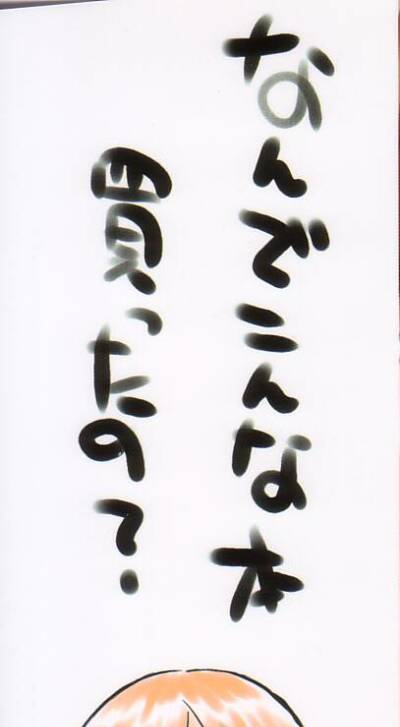 なんでこんな本
買ったの?